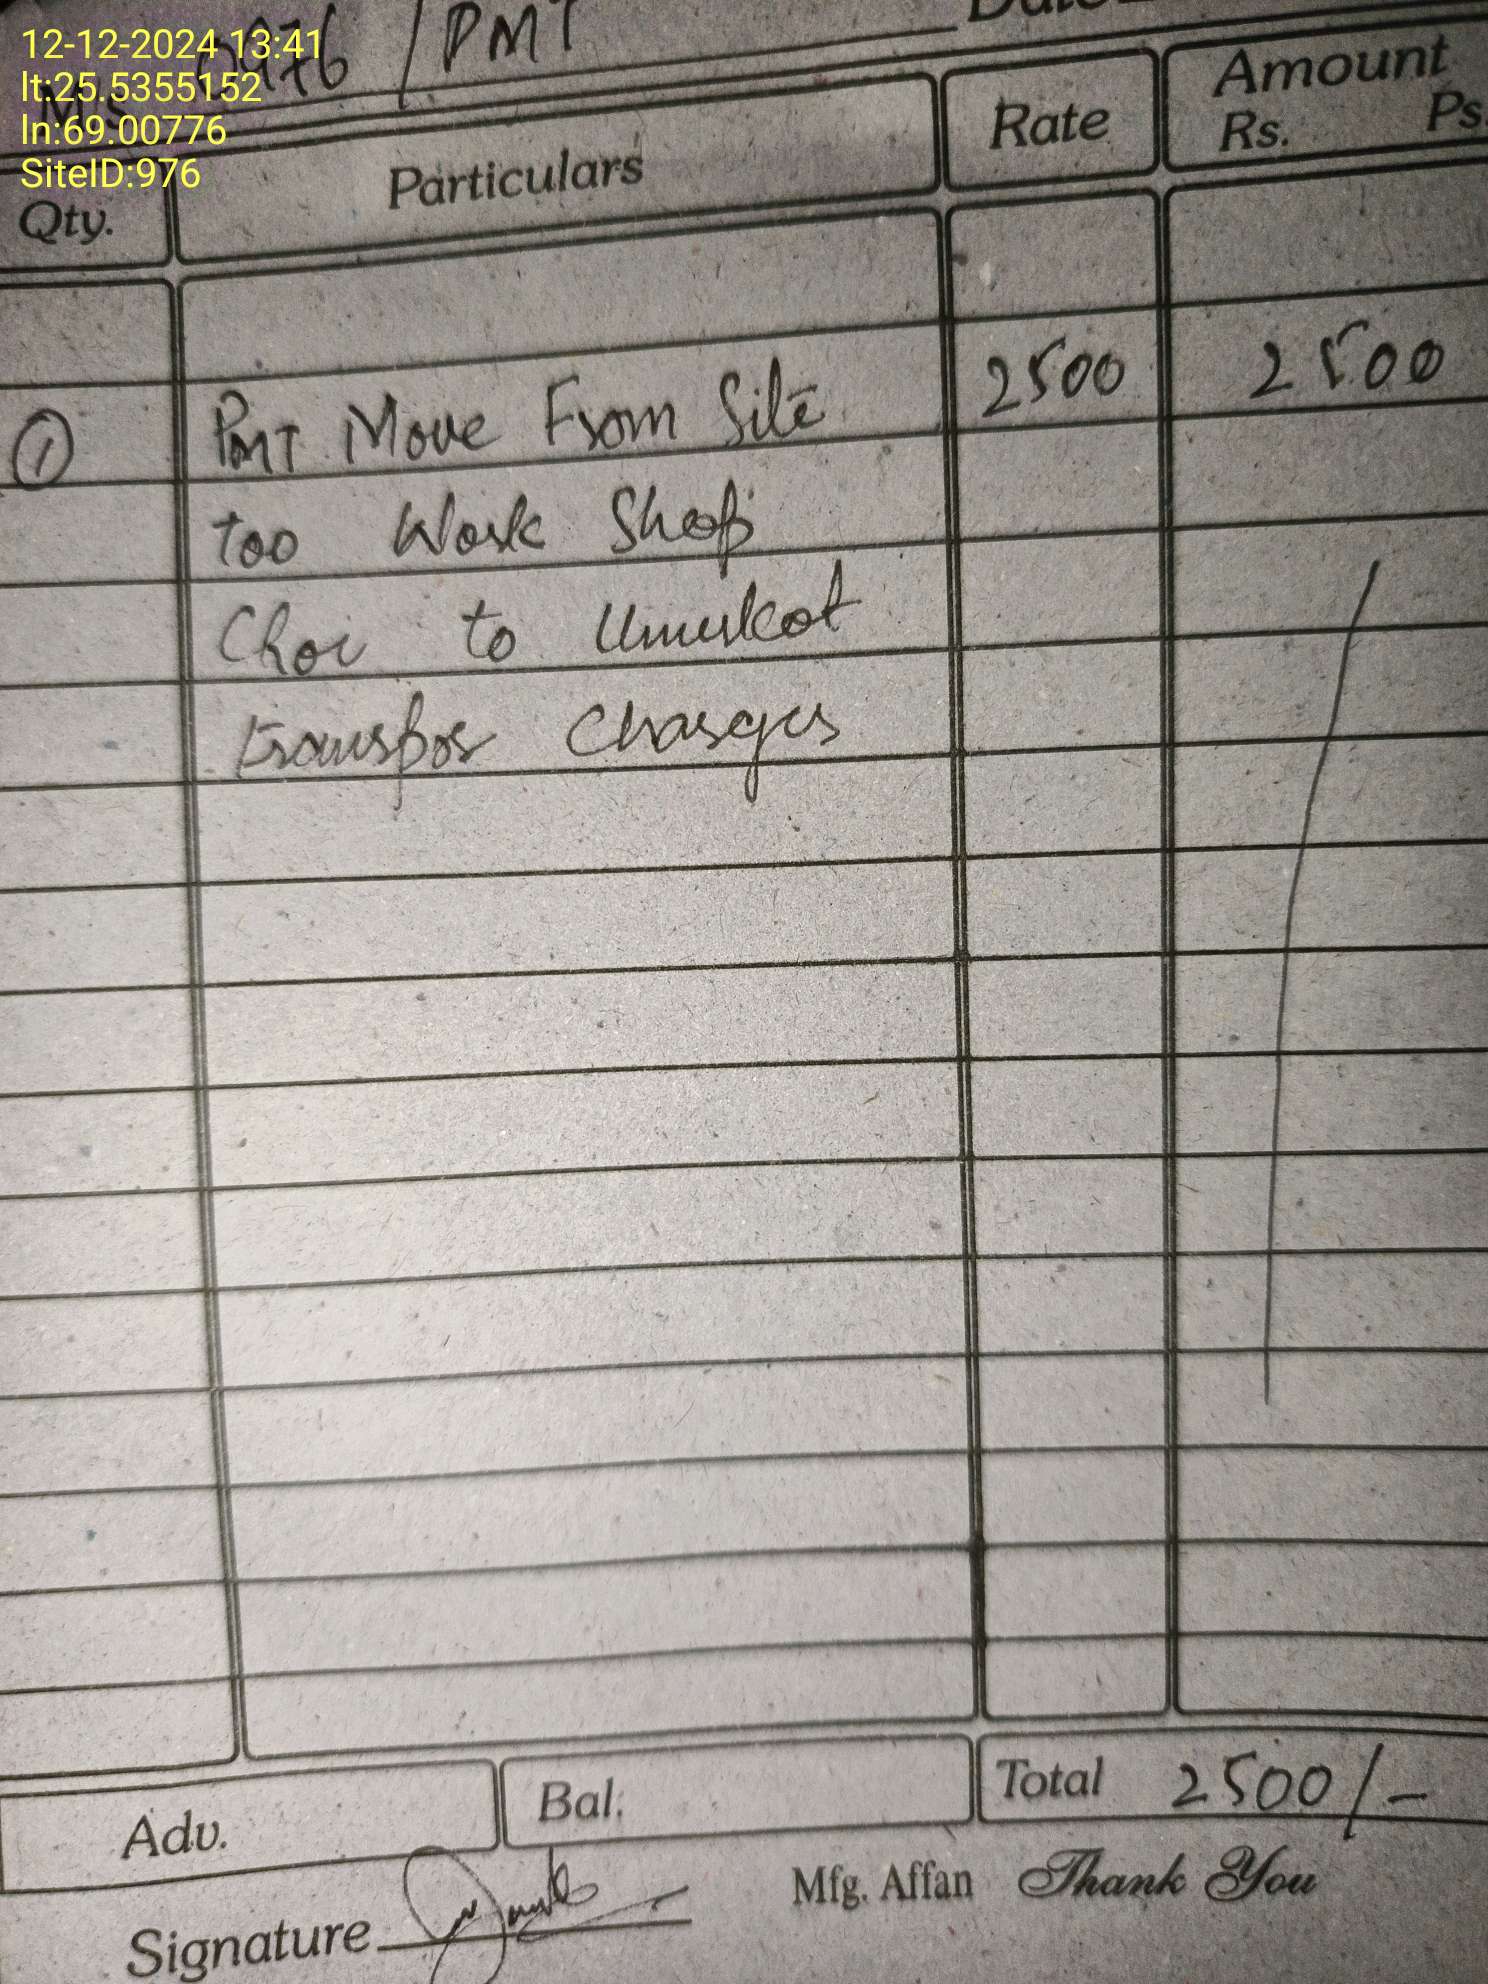 12-12-2024 13:41
lt:25.5355152
ln:69.00776
SiteID:976
M/s 0976 / PMT
Date
Qty. Particulars Rate Amount
Rs. Ps.
1 PMT Move From Site 2500 2500
too Work Shop
Choi to Umerkot
transpor Charges
Adv. Bal. Total 2500/-
Signature
Mfg. Affan Thank You